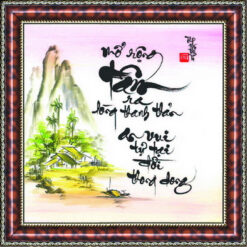 nhổ rộng
Tâm
ra
lòng thanh thản
an vui
tự tại
đời
thong dong